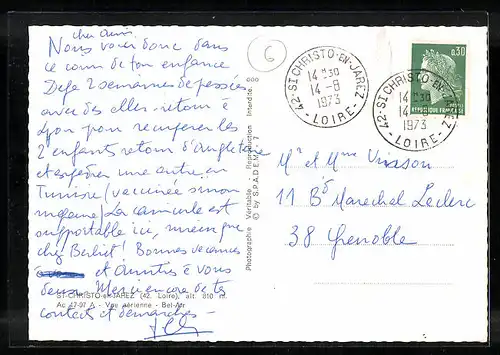 cher ami.
Nous voici donc dans
ce coin de ton enfance
Déjà 2 semaines de passées
avec des elles - retour à
Lyon pour récupérer les
2 enfants retour d'Angleterre
et expédier une autre en
Tunisie (vaccinée sinon
La canicule est
supportable ici, mieux que
chez Berliet! Bonnes vacances
et Amitiés à vous
deux. Merci encore de tes
contacts et démarches -
ST-CHRISTO-en-JAREZ (42. Loire), alt. 810 m.
Ac 47-97 A - Vue aérienne - Bel-Air
Photographie Véritable - Reproduction Interdite
© by S.P.A.D.E.M.
6
42-ST CHRISTO-EN-JAREZ
14 H30
14 -8
1973
- LOIRE -
0,30
REPUBLIQUE FRANÇAISE
42-ST CHRISTO-EN-JAREZ
14 H30
14
1973
- LOIRE -
Mr et Mme Vinsson
11 Bd Marechal Leclerc
38 Grenoble